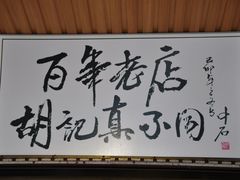 百年老店
胡記真不同
中石